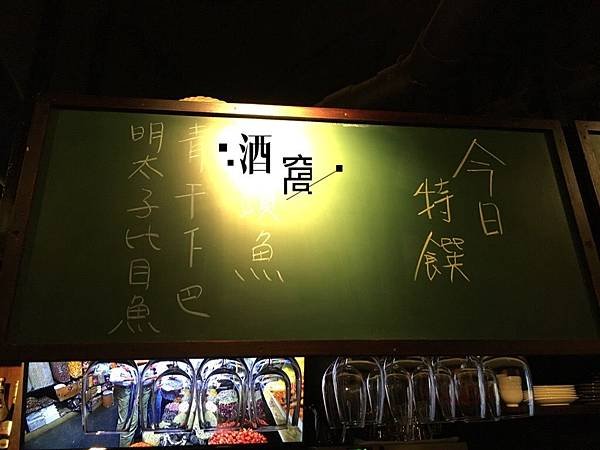 今日
特饌
魚
青干下巴
明太子比目魚
酒窩